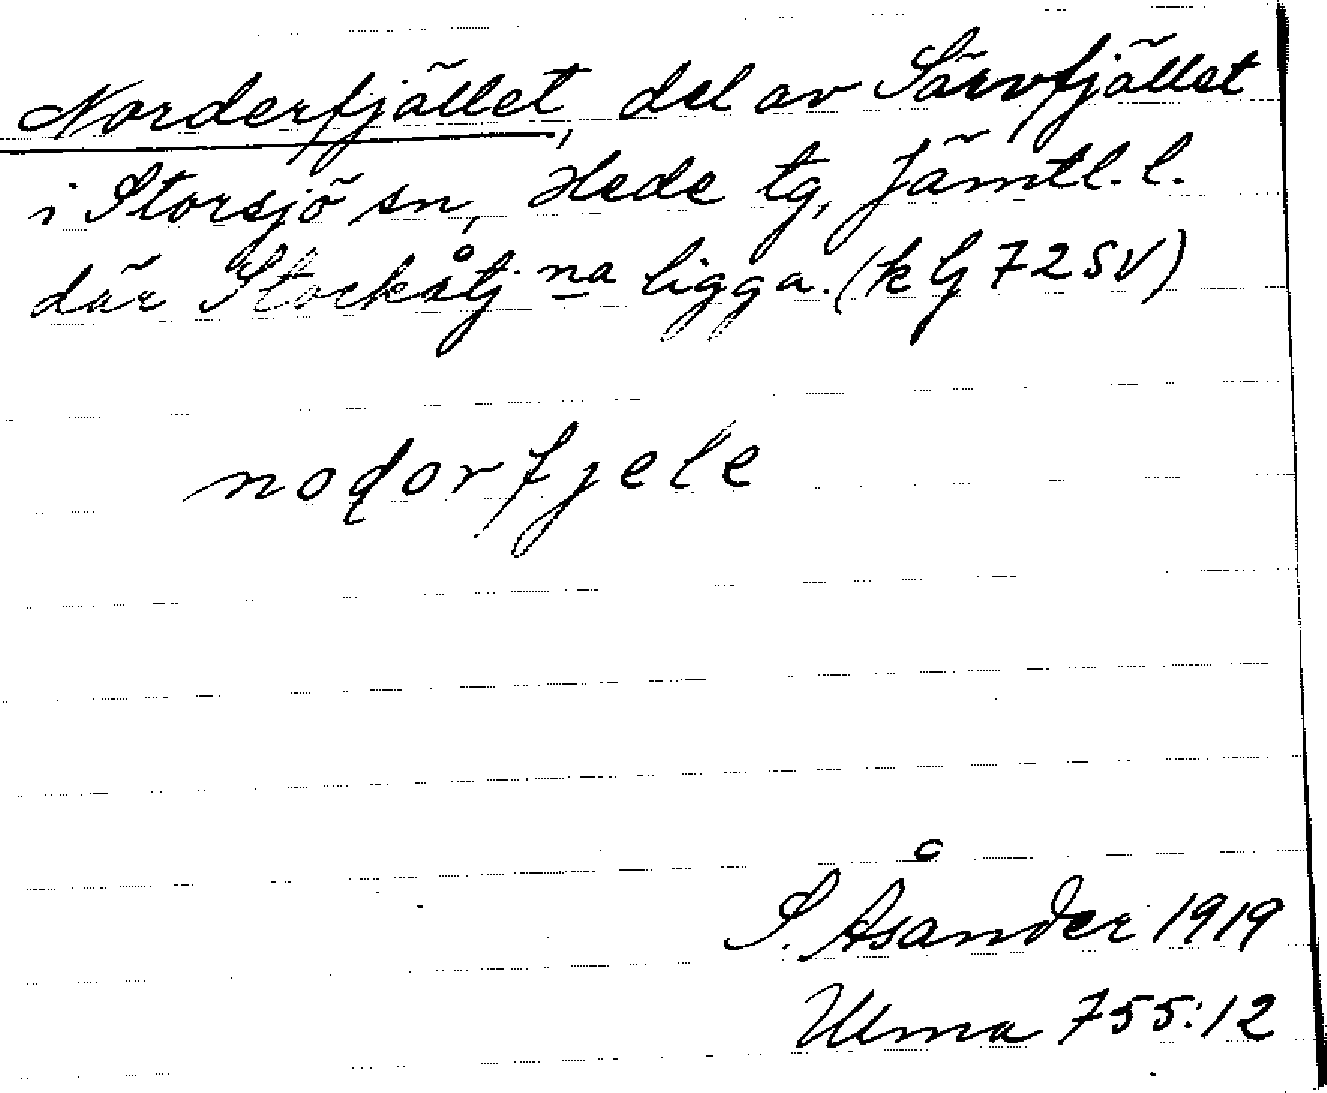 Norderfjället, del av Särvfjället
i Storsjö sn, Hede tg, Jämtl. l.
där Stockåtj:na ligga. (kbl 72 SV)
noḍorfjele
S. Åsander 1919
Ulma 755:12